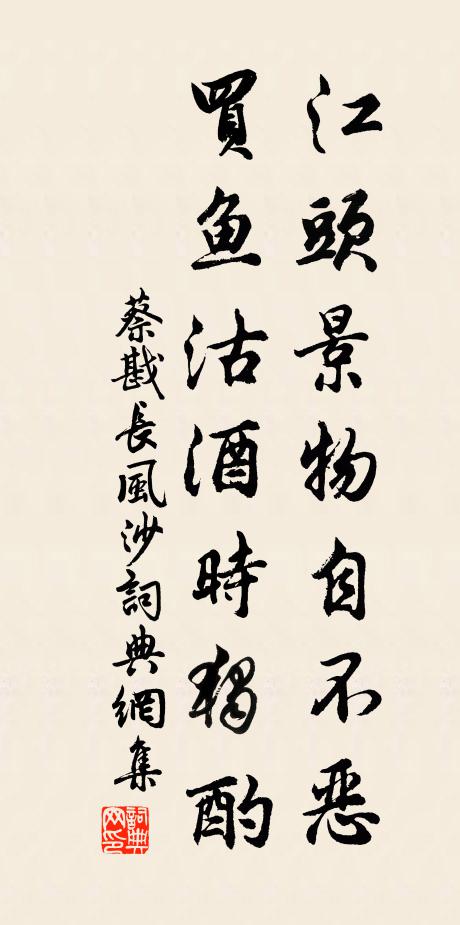 江頭景物自不惡
買魚沽酒時獨酌
蔡戡長風沙詞典網集
詞典網印